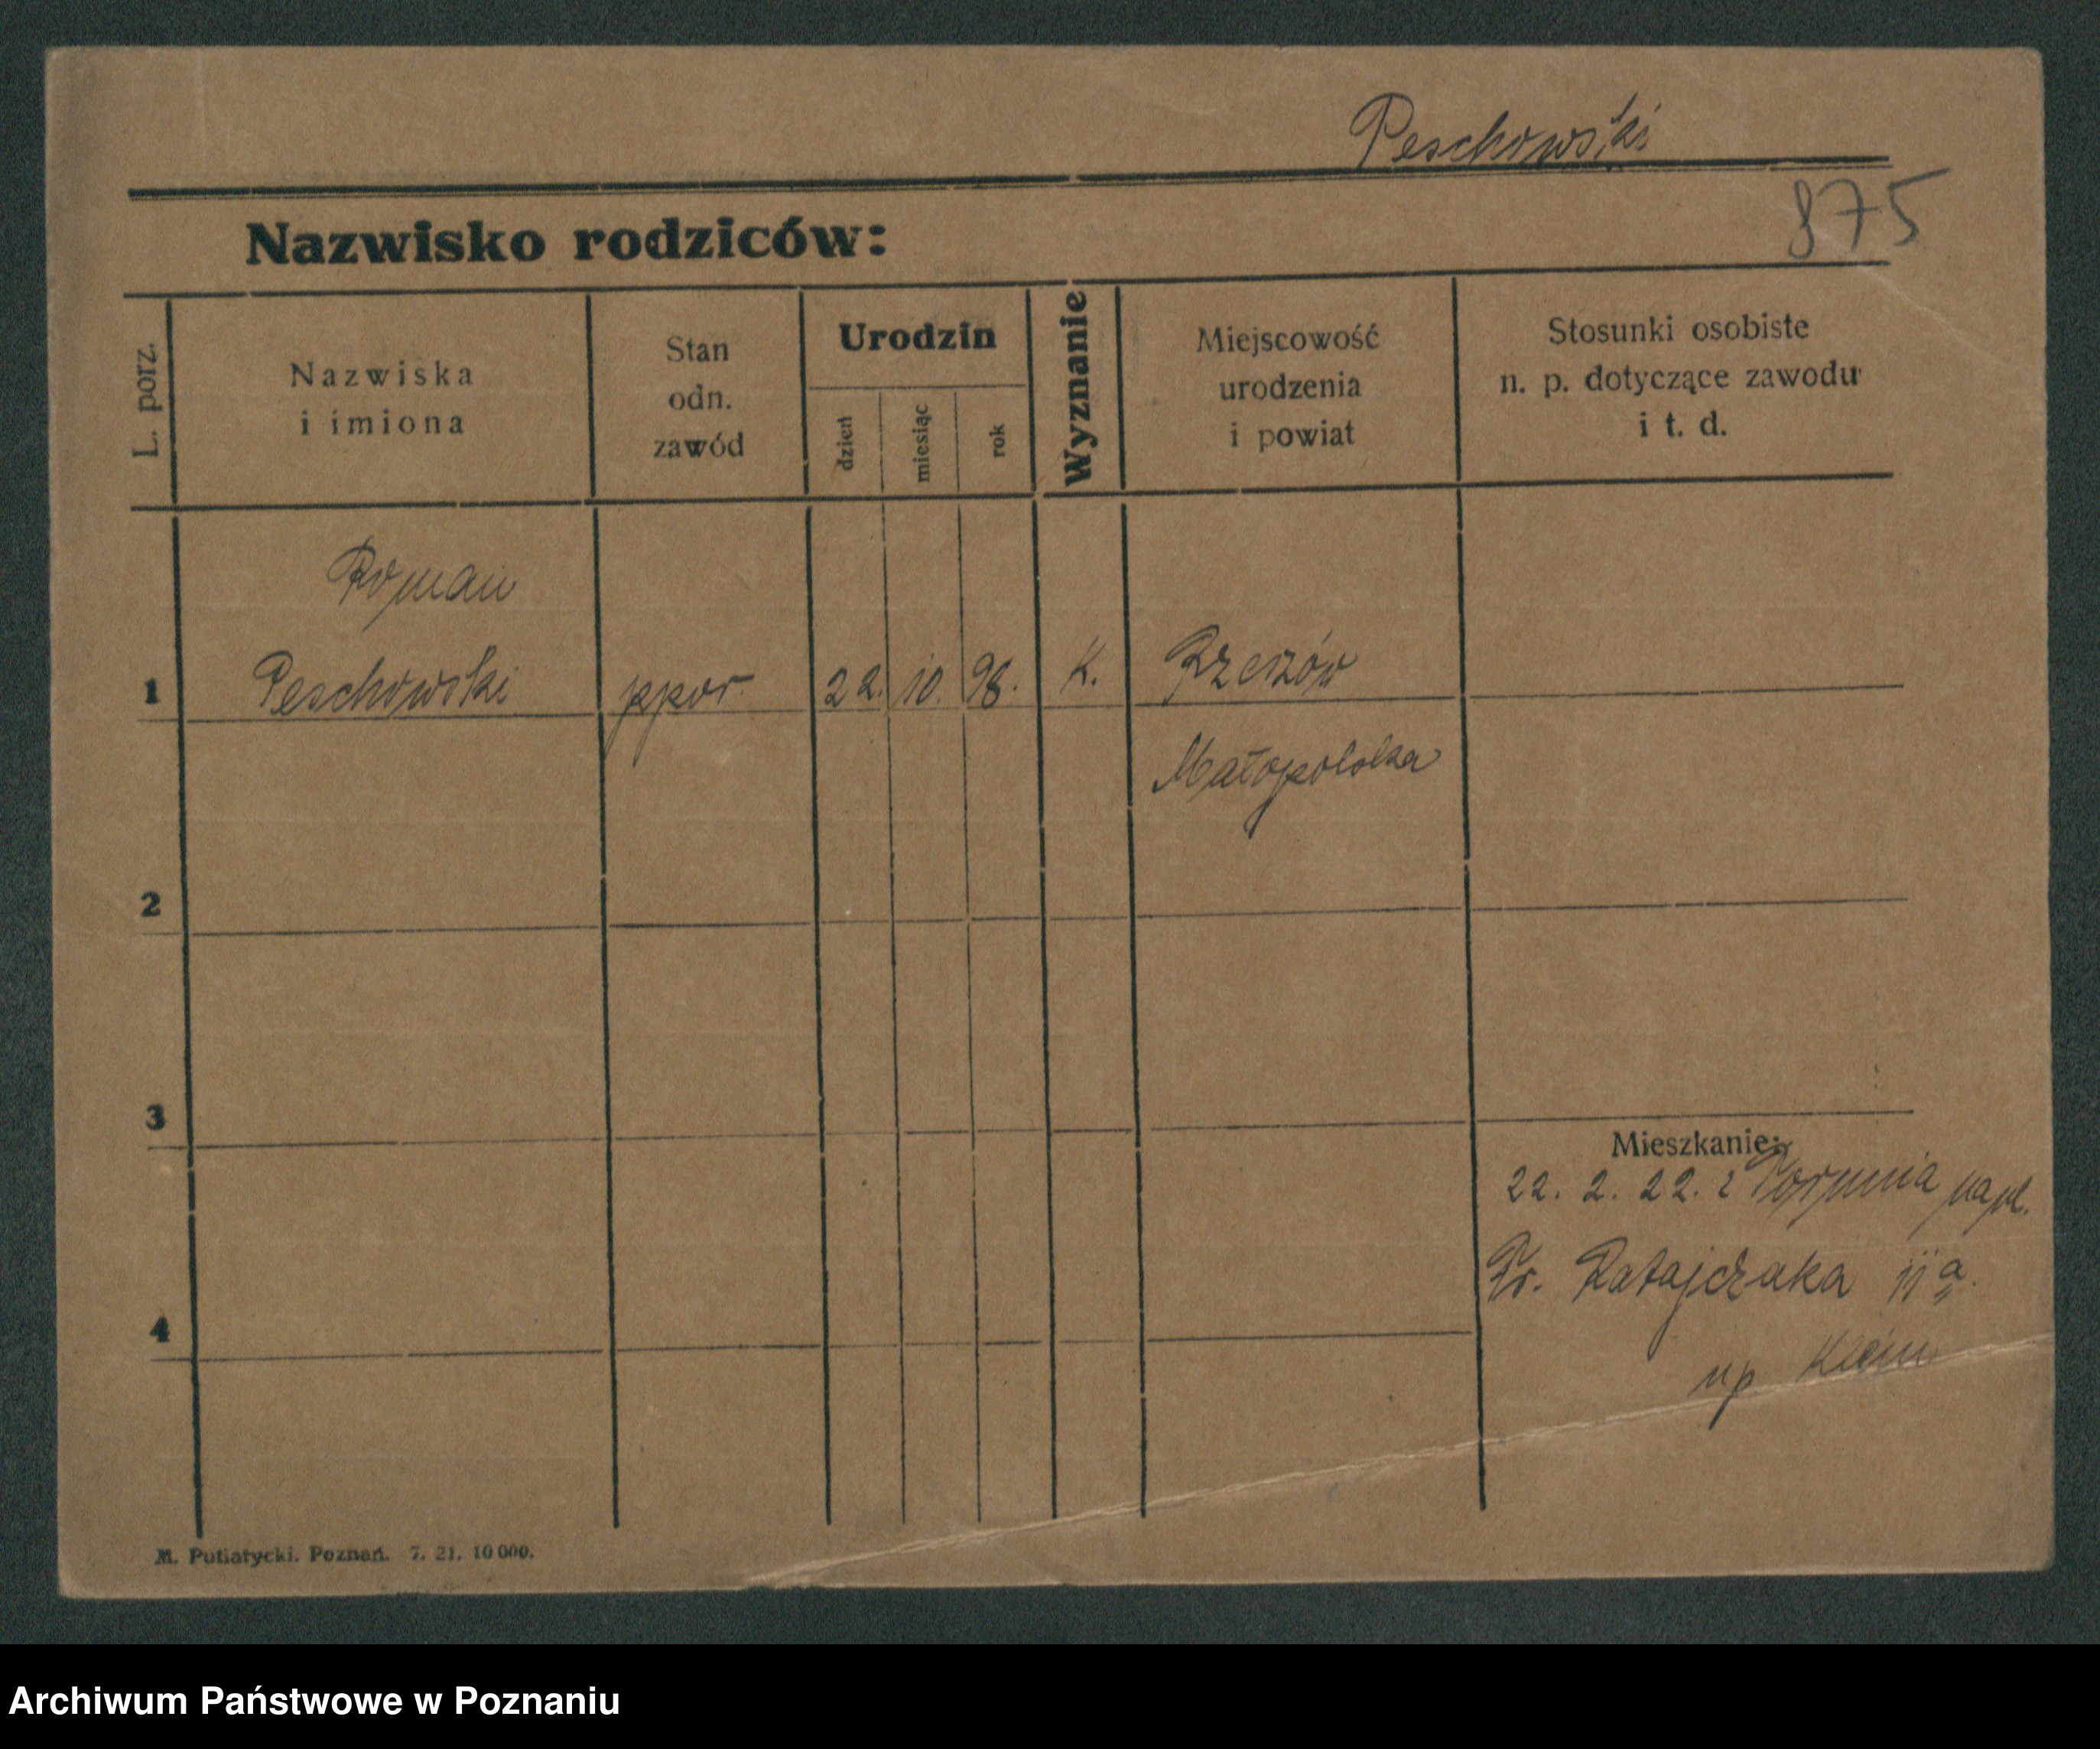 Peschowski
875
Nazwisko rodziców:
L. porz.
Nazwiska
i imiona
Stan
odn.
zawód
Urodzin
dzień
miesiąc
rok
Wyznanie
Miejscowość
urodzenia
i powiat
Stosunki osobiste
n. p. dotyczące zawodu
i t. d.
Roman
1 Peschowski ppor. 22. 10. 98. K. Rzeszów
Małopolska
2
3
Mieszkanie:
22. 2. 22. z Torunia na pl.
Fr. Ratajczaka 11a.
4
up Klein
M. Putiatycki. Poznań. 7. 21. 10 000.
Archiwum Państwowe w Poznaniu